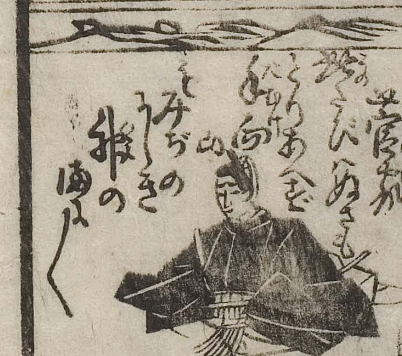 菅家
此たびハぬさも
とりあへず
手向
山
もみぢの
にしき
神の
随に〱